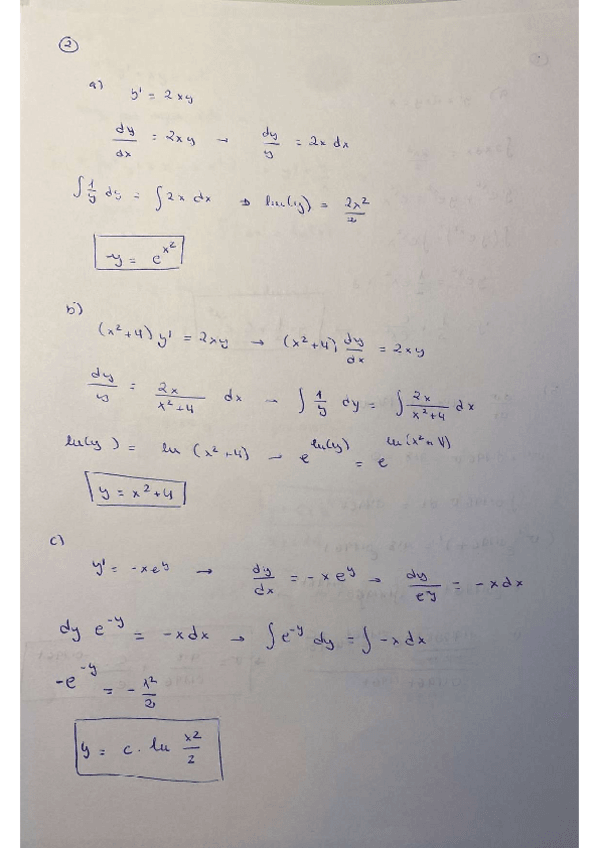 2
a) y' = 2xy
dy/dx = 2xy → dy/y = 2x dx
∫ 1/y dy = ∫ 2x dx ⇒ ln(y) = 2x²/2
y = e^x²
b) (x²+4) y' = 2xy → (x²+4) dy/dx = 2xy
dy/y = 2x/x²+4 dx → ∫ 1/y dy = ∫ 2x/x²+4 dx
ln(y) = ln (x²+4) → e^ln(y) = e^ln(x²+4)
y = x²+4
c) y' = -xe^y → dy/dx = -x e^y → dy/e^y = -x dx
dy e^-y = -x dx → ∫ e^-y dy = ∫ -x dx
-e^-y = - x²/2
y = c · ln x²/2